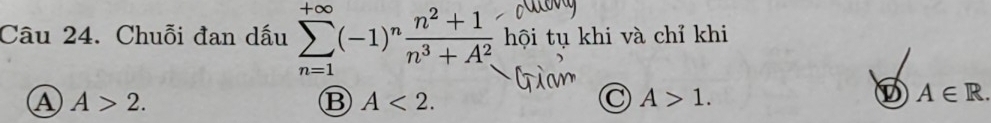 dương
Câu 24. Chuỗi đan dấu $\sum_{n=1}^{+\infty} (-1)^n \frac{n^2+1}{n^3+A^2}$ hội tụ khi và chỉ khi
Giảm
Ⓐ A > 2. Ⓑ A < 2. Ⓒ A > 1. Ⓓ A ∈ ℝ.